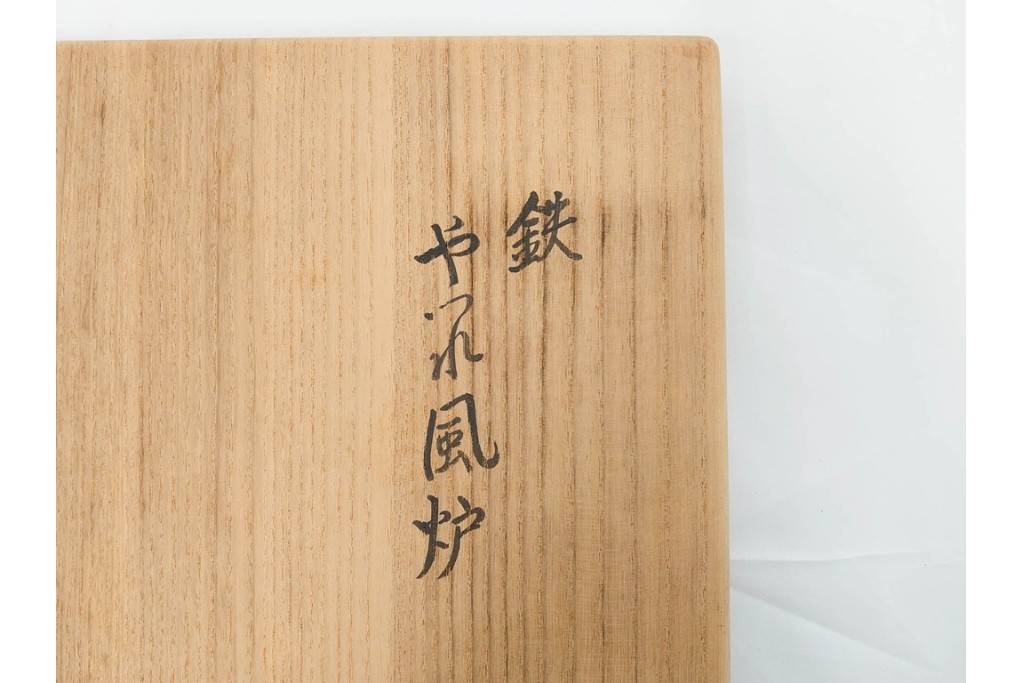 鉄
やつれ風炉